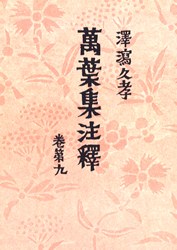 澤瀉久孝
萬葉集注釋
卷第九